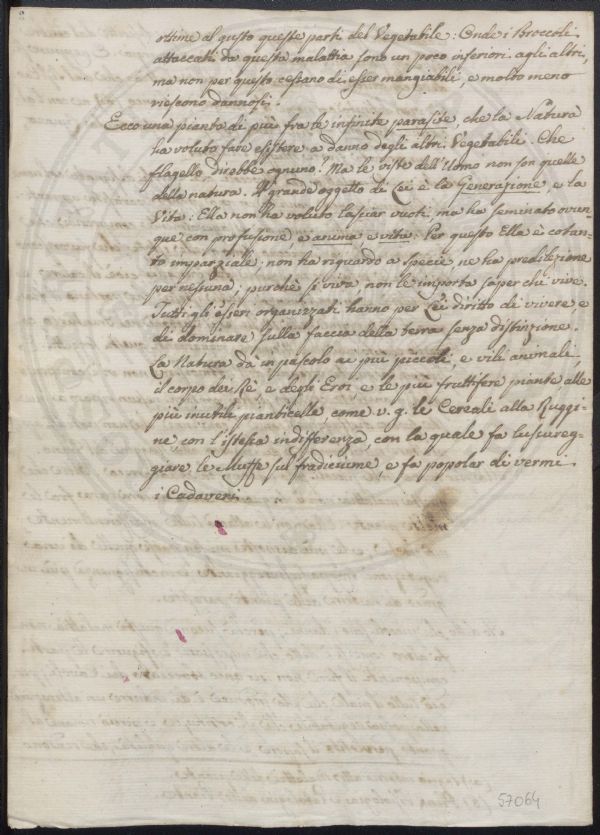 ottime al gusto queste parti del Vegetabile: Onde i Broccoli
attaccati da questa malattia sono un poco inferiori agli altri,
ma non per questo cessano di esser mangiabili, e molto meno
riescono dannosi.
Ecco una pianta di più fra le infinite parasite, che la Natura
ha voluto fare esistere a danno degli altri Vegetabili. Che
flagello dirobbe ognuno! Ma le viste dell'Uomo non son quelle
della natura. Il grande oggetto di Lei è la Generazione, e la
Vita: Ella non ha voluto lasciar vuoti, ma ha seminato ovun-
que con profusione, e anima, e vita: Per questo Ella è cotan-
to imparziale; non ha riguardo a specie, ne ha predilezione
per nessuna; purchè si viva, non le importa saper chi vive.
Tutti gli esseri organizzati hanno per Lei diritto di vivere e
di dominare sulla faccia della terra senza distinzione.
La Natura dà in pascolo ai più piccoli, e vili animali,
il corpo dei Rè, e degli Eroi, e le più fruttifere piante alle
più inutili pianticelle, come v. g. le Cereali alla Ruggi-
ne, con l'istessa indifferenza, con la quale fa lussureg-
giare le Muffe sul fradiciume, e fa popolar di vermi
i Cadaveri.
57064